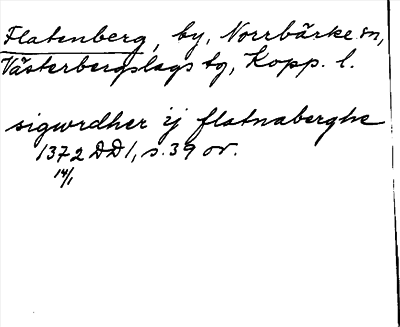 Flatenberg, by, Norrbärke sn,
Västerbergslags tg, Kopp. l.
sigwrdher ij flatnaberghe
1372 DD 1, s. 39 or.
14/1